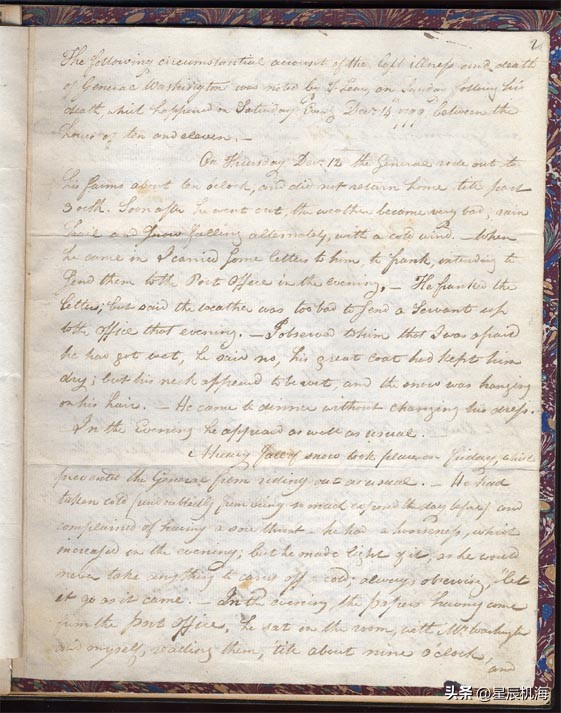 2
The following circumstantial account of the last illness and death
of General Washington was noted by T. Lear, on Sunday following his
death, which happened on Saturday Eveng Decr 14th 1799 between the
hours of ten and eleven. —
On Thursday Decr 12th the General rode out to
his farms about ten o'clock, and did not return home till past
3 oclk. Soon after he went out, the weather became very bad, rain
hail and Snow falling alternately, with a cold wind. — When
he came in I carried some letters to him to frank, intending to
send them to the Post Office in the evening. — He franked the
letters; but said the weather was too bad to send a Servant up
to the office that evening. — I observed to him that I was afraid
he had got wet, he said no, his great coat had kept him
dry; but his neck appeared to be wet, and the snow was hanging
on his hair. — He came to dinner without changing his dress.
In the Evening he appeared as well as usual. —
A heavy fall of snow took place on Friday, which
prevented the General from riding out as usual. — He had
taken cold (undoubtedly from being so much exposed the day before) and
complained of having a sore throat — he had a hoarseness, which
increased in the evening; but he made light of it, as he would
never take any thing to carry off a cold; always observing, "let
it go as it came. — In the evening, the papers having come
from the post office, he sat in the room, with Mrs Washington
and myself, reading them, till about nine o'clock,
and
头条 @星辰机海